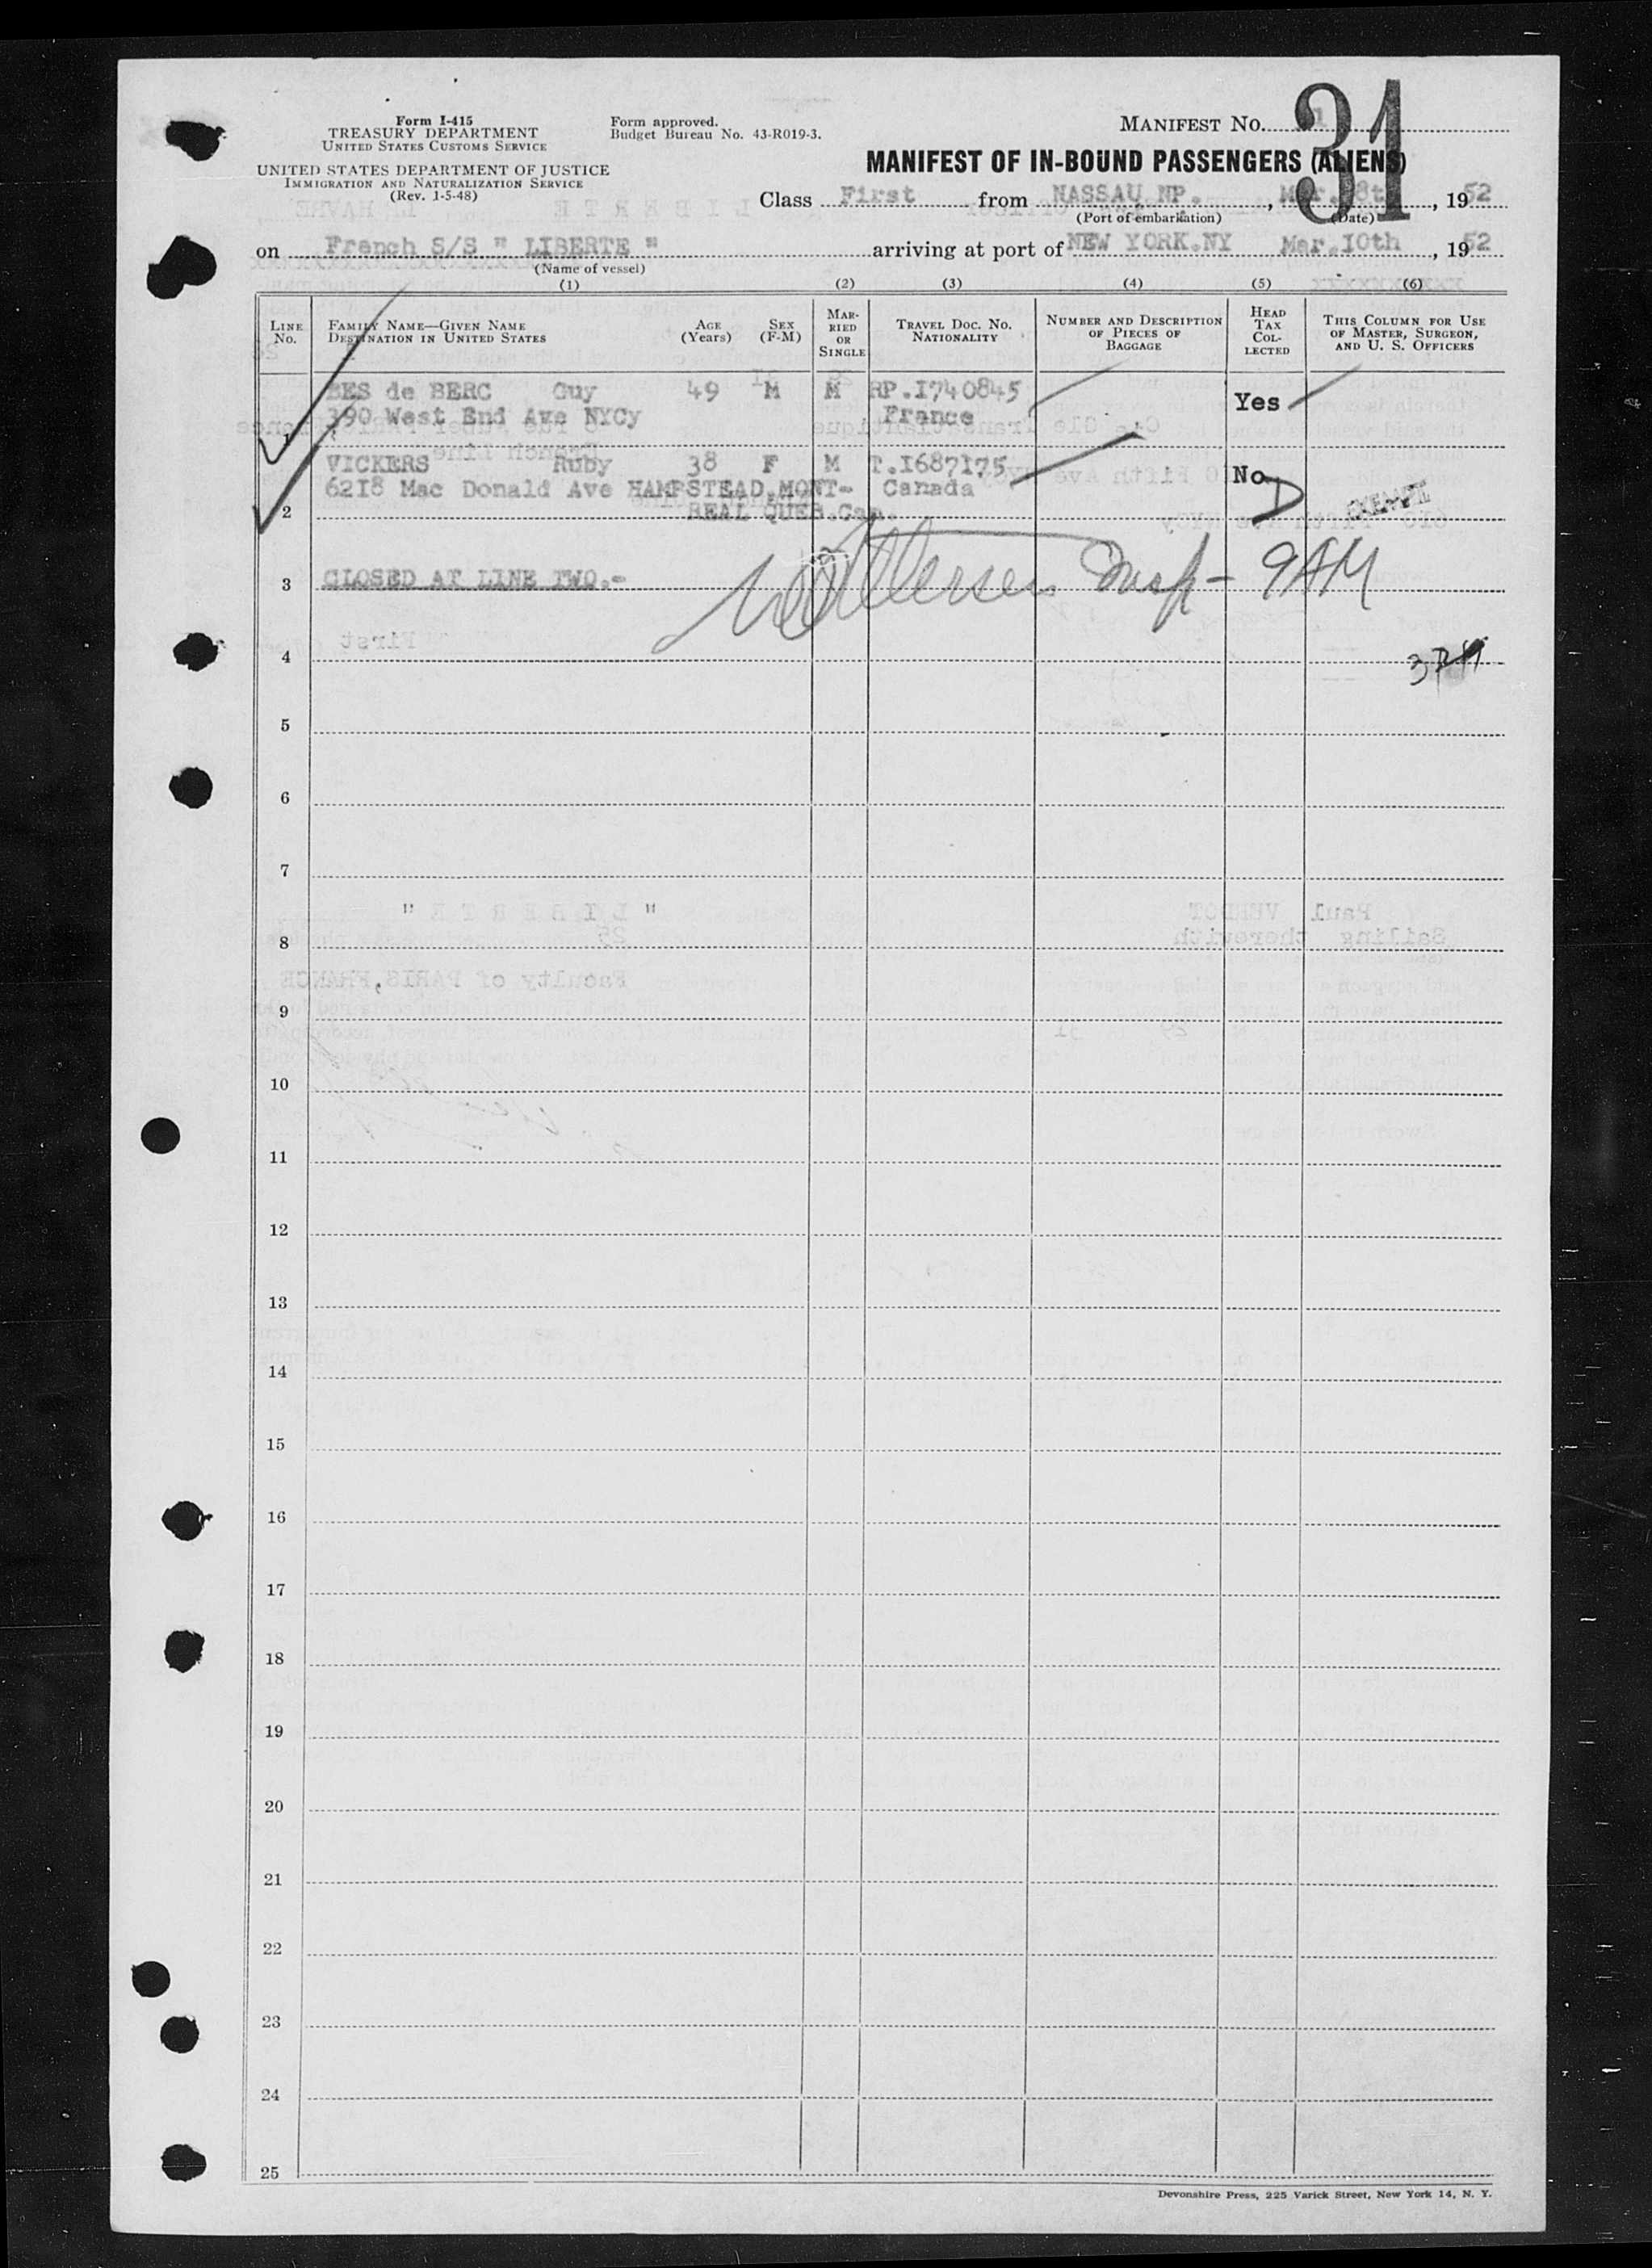 Form I-415
TREASURY DEPARTMENT
UNITED STATES CUSTOMS SERVICE
UNITED STATES DEPARTMENT OF JUSTICE
IMMIGRATION AND NATURALIZATION SERVICE
(Rev. 1-5-48)
Form approved.
Budget Bureau No. 43-R019-3.
MANIFEST NO. 31
MANIFEST OF IN-BOUND PASSENGERS (ALIENS)
Class First from NASSAU NP. , Mar. 8th , 1952
(Port of embarkation) (Date)
on French S/S " LIBERTE " arriving at port of NEW YORK.NY Mar.10th , 1952
(Name of vessel)
(1) (2) (3) (4) (5) (6)
LINE No.
FAMILY NAME—GIVEN NAME
DESTINATION IN UNITED STATES
AGE (Years)
SEX (F-M)
MARRIED OR SINGLE
TRAVEL DOC. NO. NATIONALITY
NUMBER AND DESCRIPTION OF PIECES OF BAGGAGE
HEAD TAX COLLECTED
THIS COLUMN FOR USE OF MASTER, SURGEON, AND U. S. OFFICERS
BES de BERC Guy 49 M M RP.I740845 Yes
1 390 West End Ave NYCy France
VICKERS Ruby 38 F M T.I687175 No D
6218 Mac Donald Ave HAMPSTEAD,MONT- Canada EXEMPT
2 REAL QUEB.Can.
3 CLOSED AT LINE TWO.- Insp- 9AM
4
5
6
7
8
9
10
11
12
13
14
15
16
17
18
19
20
21
22
23
24
25
Devonshire Press, 225 Varick Street, New York 14, N. Y.